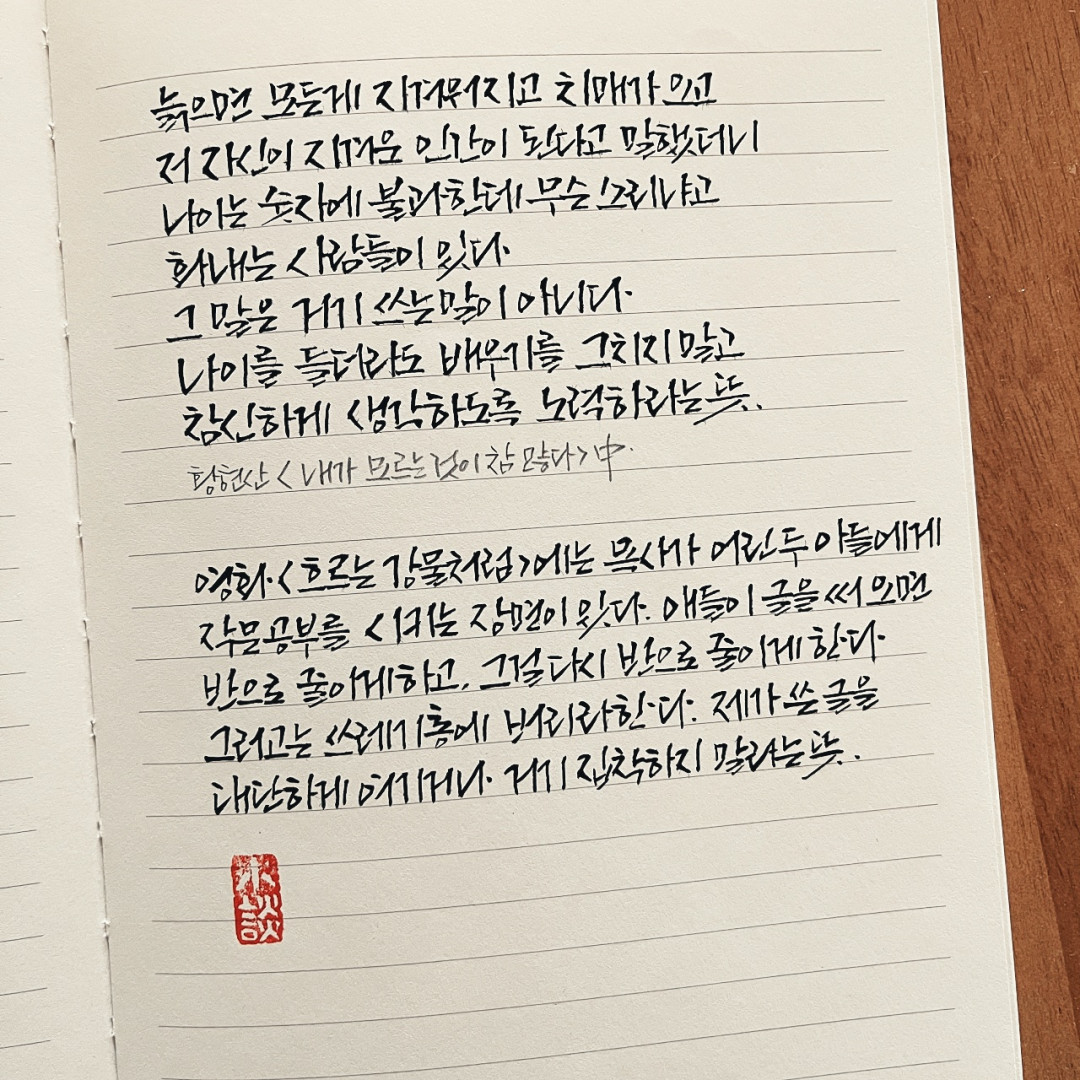 늙으면 모든게 지겨워지고 치매가 오고
저 자신이 지겨운 인간이 된다고 말했더니
나이는 숫자에 불과한데 무슨 소리냐고
화내는 사람들이 있다.
그 말은 거기 쓰는 말이 아니다.
나이를 들더라도 배우기를 그치지 말고
참신하게 생각하도록 노력하라는 뜻.
황현산 <내가 모르는 것이 참 많다> 中.
영화 <흐르는 강물처럼>에는 목사가 어린 두 아들에게
작문공부를 시키는 장면이 있다. 애들이 글을 써 오면
반으로 줄이게 하고, 그걸 다시 반으로 줄이게 한다
그러고는 쓰레기통에 버리라 한다. 제가 쓴 글을
대단하게 여기거나 거기 집착하지 말라는 뜻.